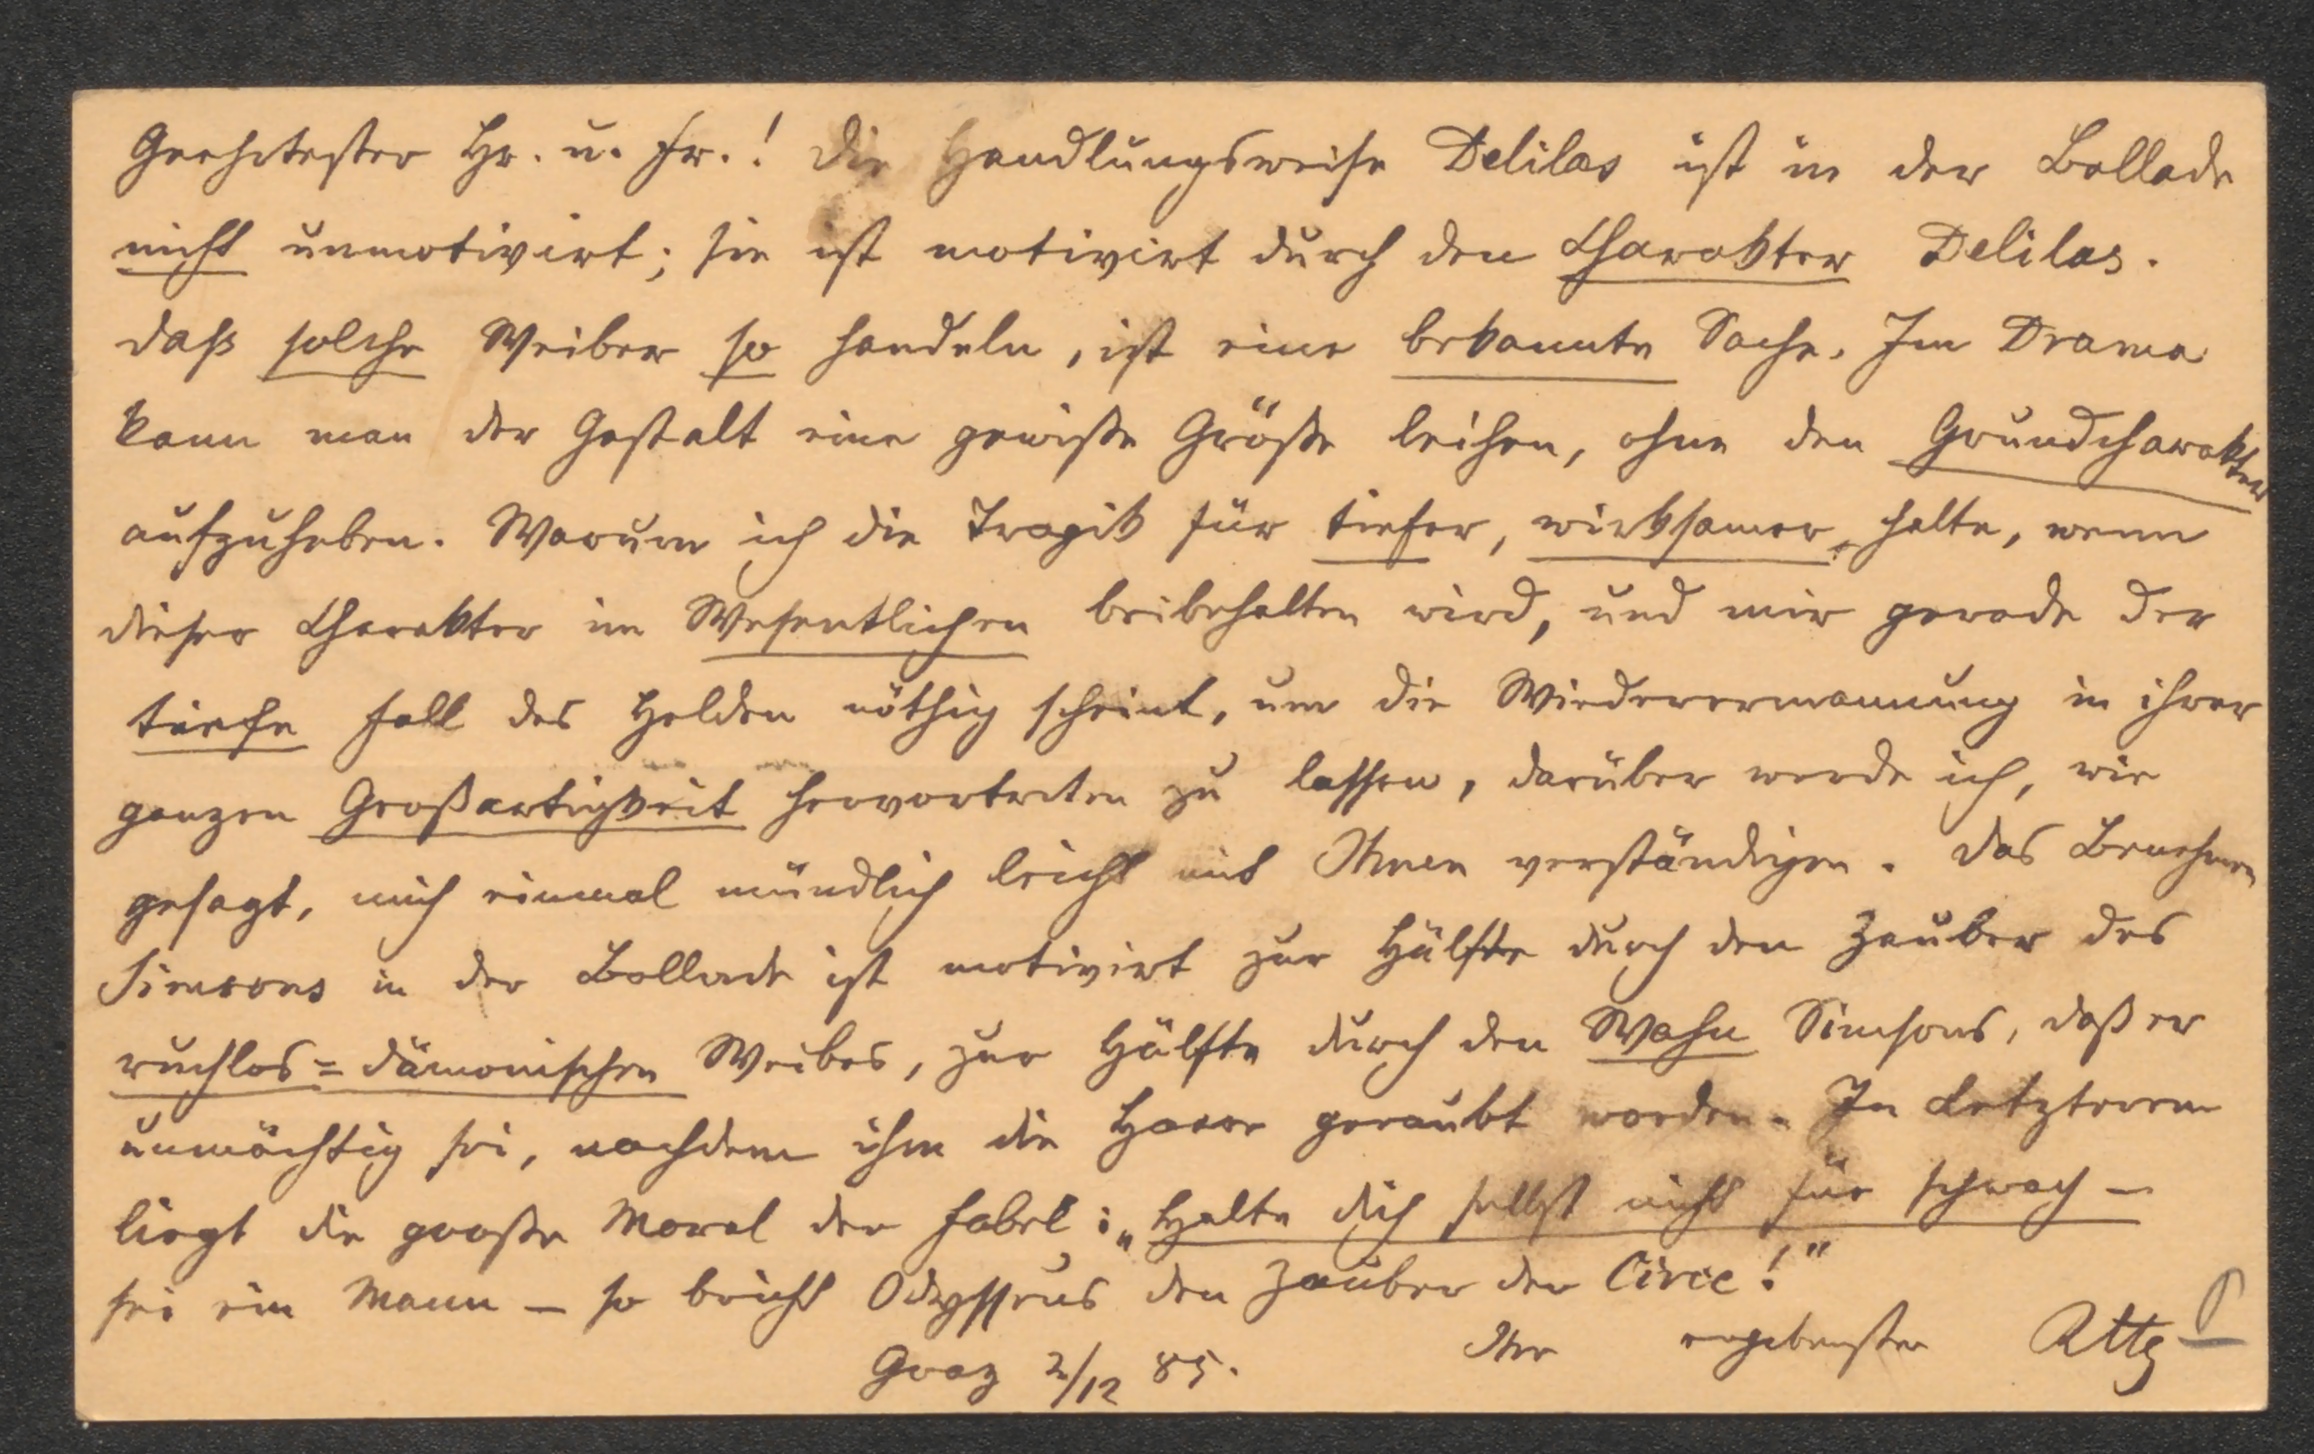 Geehrtester Hr. u. Fr.! Die Handlungsweise Delilas ist in der Ballade
nicht unmotivirt; sie ist motivirt durch den Charakter Delilas.
Daß solche Weiber so handeln, ist eine bekannte Sache. Im Drama
kann man der Gestalt eine gewisse Größe leihen, ohne den Grundcharakter
aufzuheben. Warum ich die Tragik für tiefer, wirksamer, halte, wenn
dieser Charakter im Wesentlichen beibehalten wird, und mir gerade der
tiefe Fall des Helden nöthig scheint, um die Wiederermannung in ihrer
ganzen Großartigkeit hervortreten zu lassen, darüber werde ich, wie
gesagt, mich einmal mündlich leicht mit Ihnen verständigen. Das Benehmen
Simsons in der Ballade ist motivirt zur Hälfte durch den Zauber des
ruchlos=dämonischen Weibes, zur Hälfte durch den Wahn Simsons, daß er
unmächtig sei, nachdem ihm die Haare geraubt worden. In Letzterem
liegt die große Moral der Fabel: „Halte dich selbst nicht für schwach –
sei ein Mann – so bricht Odysseus den Zauber der Circe!"
Graz 2/12 85. Ihr ergebenster